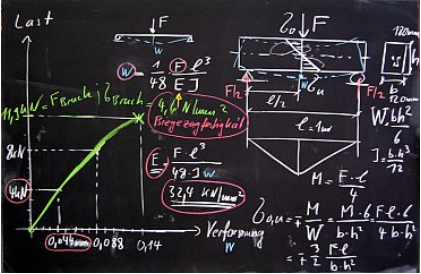 Last
F
w
w = 1/48 F·l³/EJ
11,9 kN = F Bruch ; σ Bruch = 4,6 N/mm²
Biegezugfestigkeit
8kN
4kN
E = F·l³/48·J·w
32,4 kN/mm²
0,044mm 0,088 0,14
Verformung
w
σo F
w
σu
F/2 F/2
l/2
l = 1m
M = F·l/4
120mm
h
b
120mm
W = bh²/6
J = b·h³/12
σo,u = ∓ M/W = M·6/b·h² = F·l·6/4·b·h²
= ∓ 3/2 F·l/b·h²